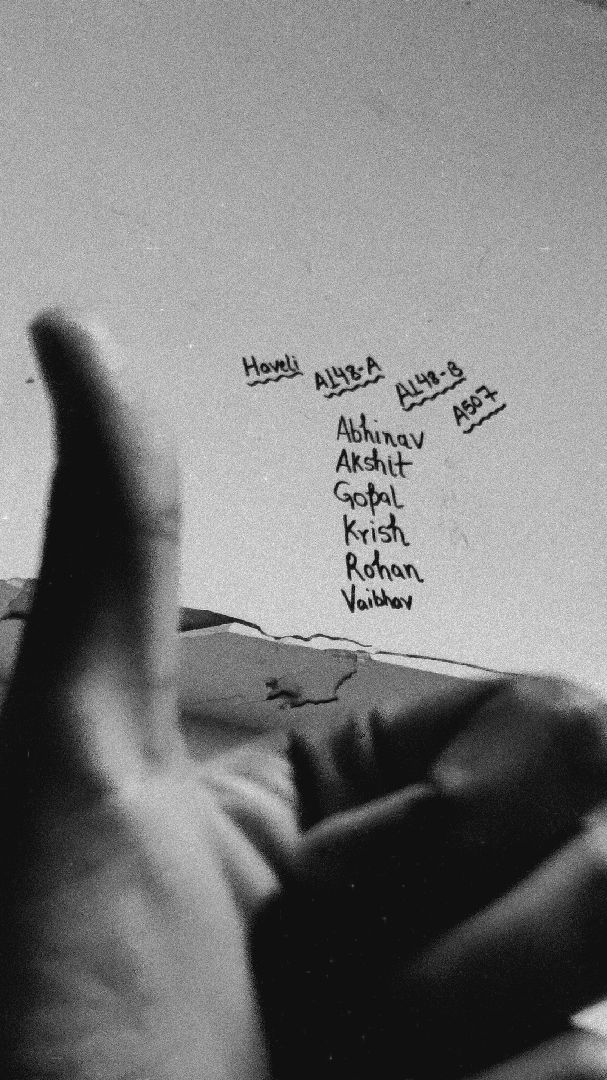 Haveli A148-A A148-B A507
Abhinav
Akshit
Gopal
Krish
Rohan
Vaibhav